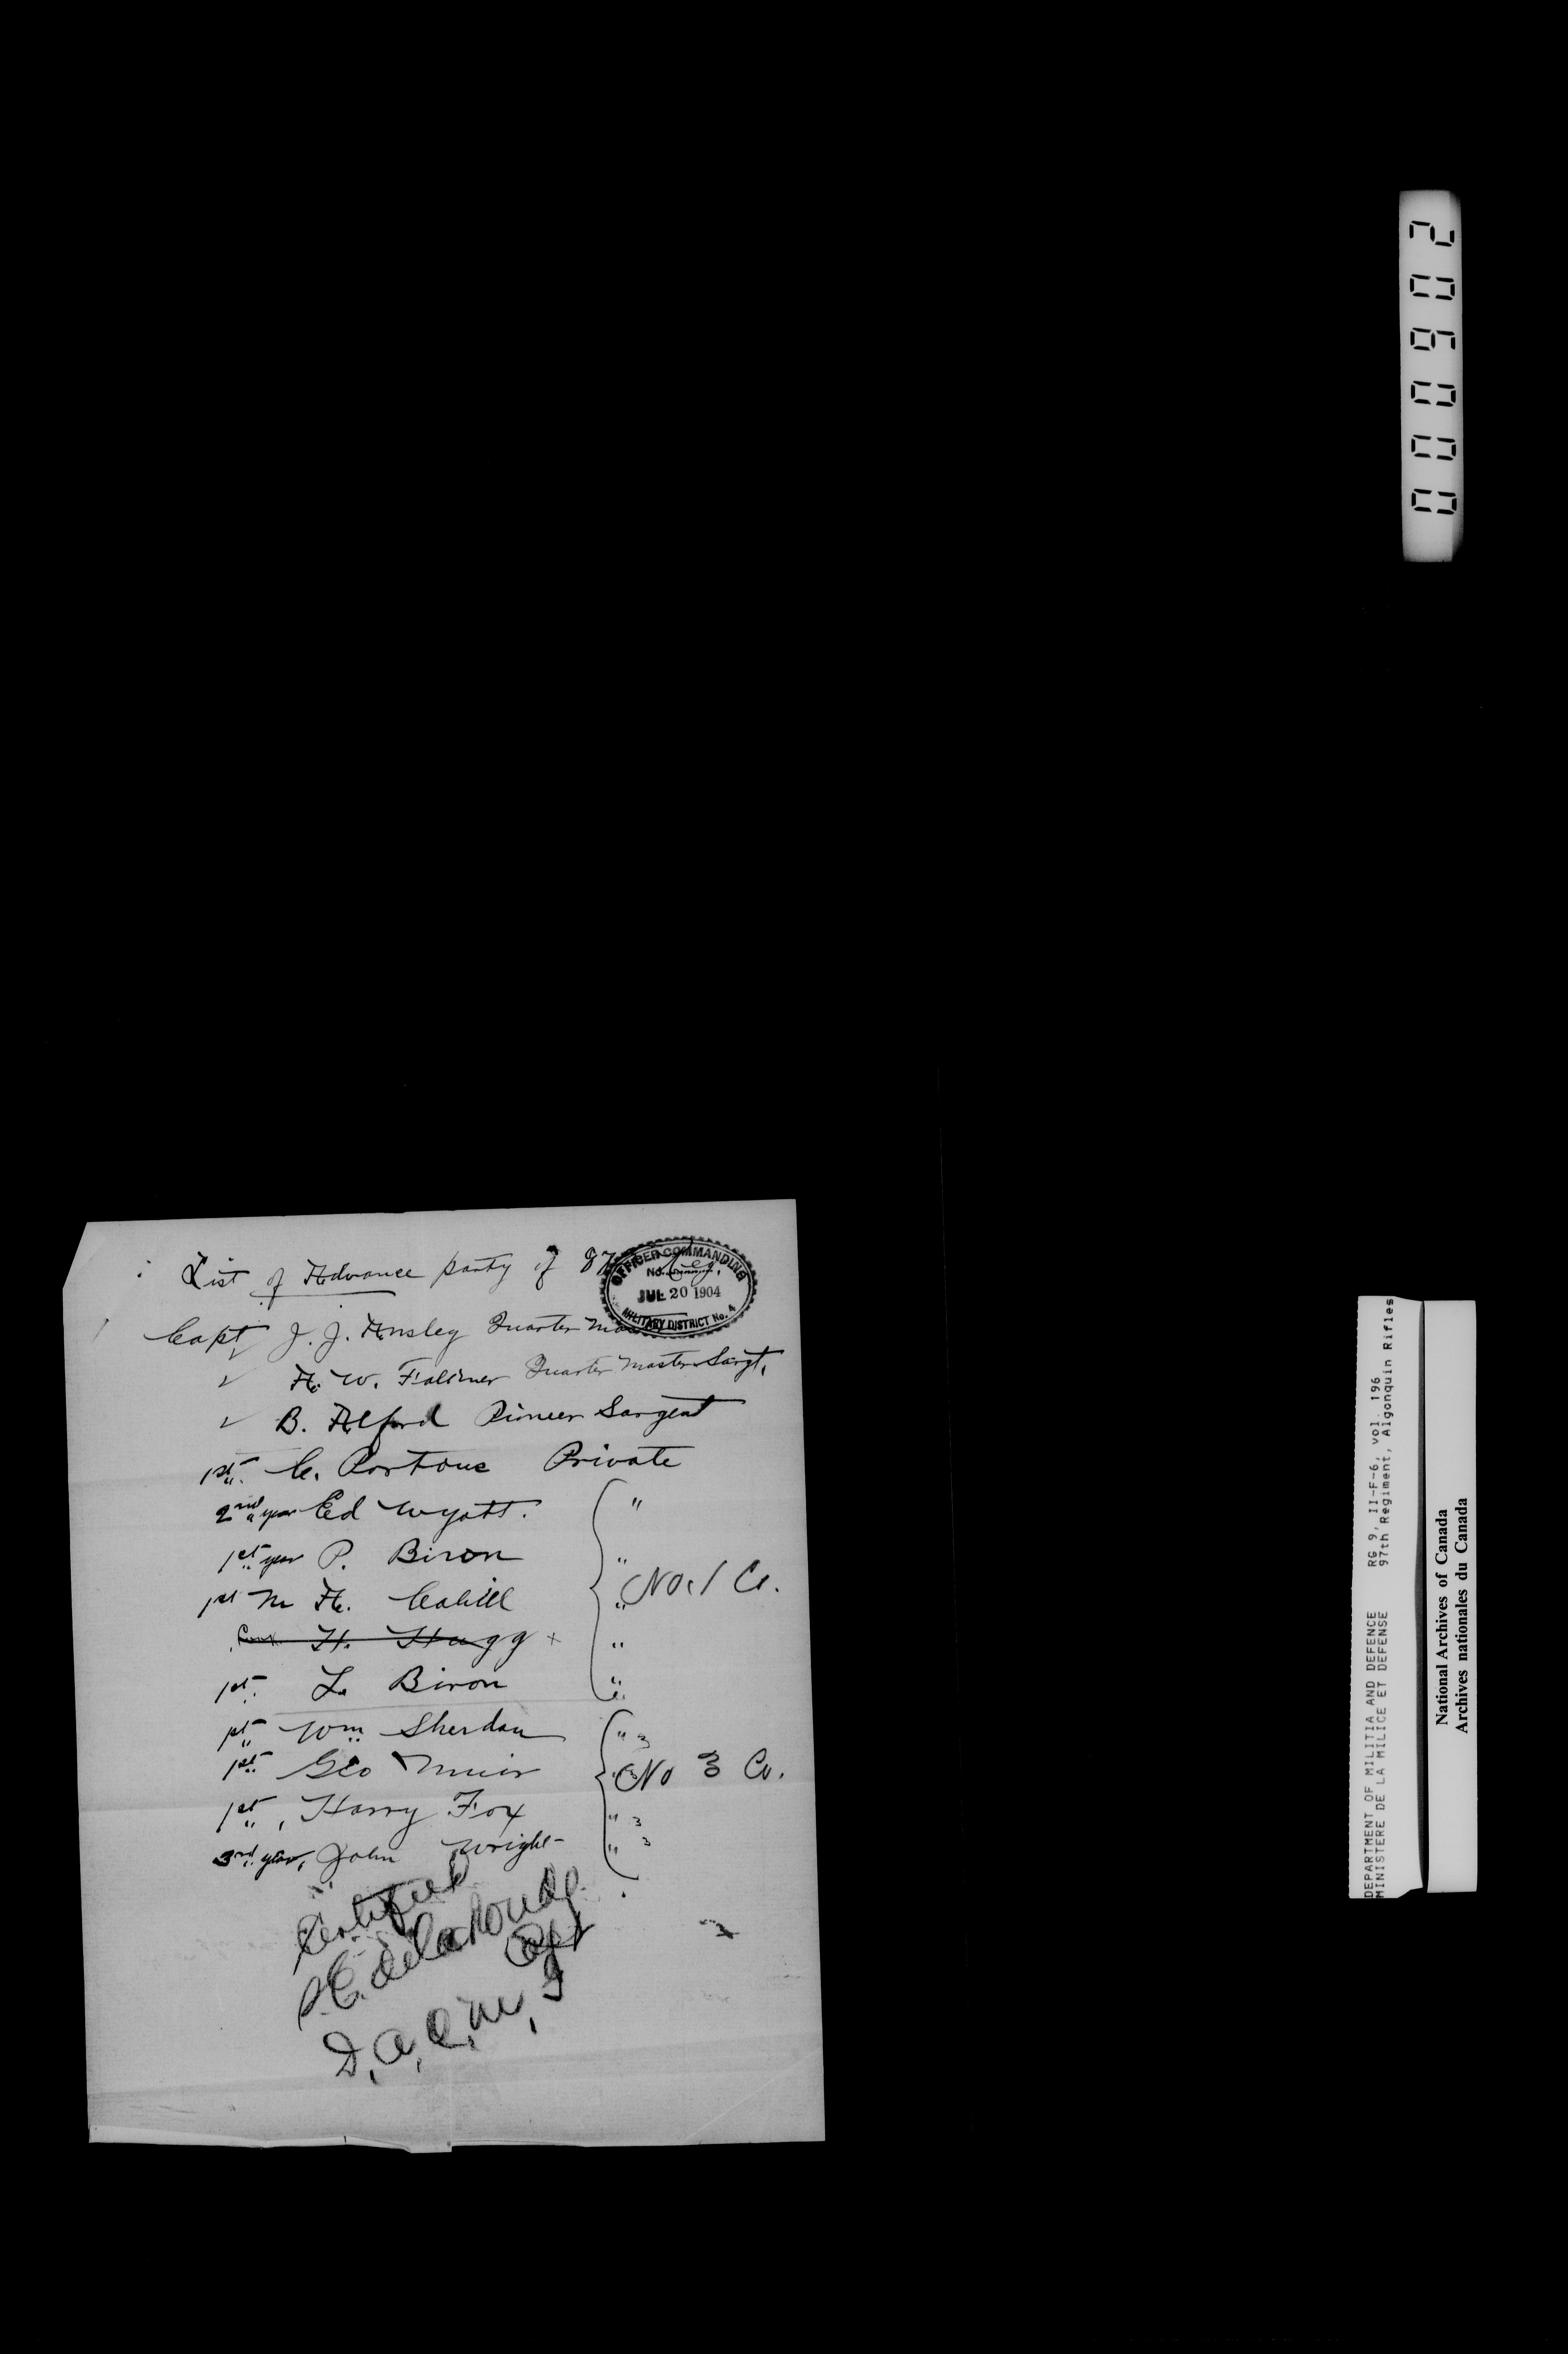 List of Advance party of 97 Reg.
OFFICER COMMANDING
No.
JUL 20 1904
MILITARY DISTRICT No. 4
Capt J. J. Ansley Quarter Ma
✓ A. W. Quarter Master Sargt.
✓ B. Alford Pioneer Sargent
1st C. Portous Private
2nd year Ed Wyatt. "
1st year P. Biron "
1st M A. Cahill " No. 1 Co.
Cook H. Hugg × "
1st L. Biron "
1st Wm Sherdan " 3
1st Geo Muir " 3 No 3 Co.
1st, Harry Fox " 3
3rd year, John Wright " 3
Certified
Capt
D. A. Q. M. G
000902
DEPARTMENT OF MILITIA AND DEFENCE RG 9, II-F-6, vol. 196
MINISTERE DE LA MILICE ET DEFENSE 97th Regiment, Algonquin Rifles
National Archives of Canada
Archives nationales du Canada